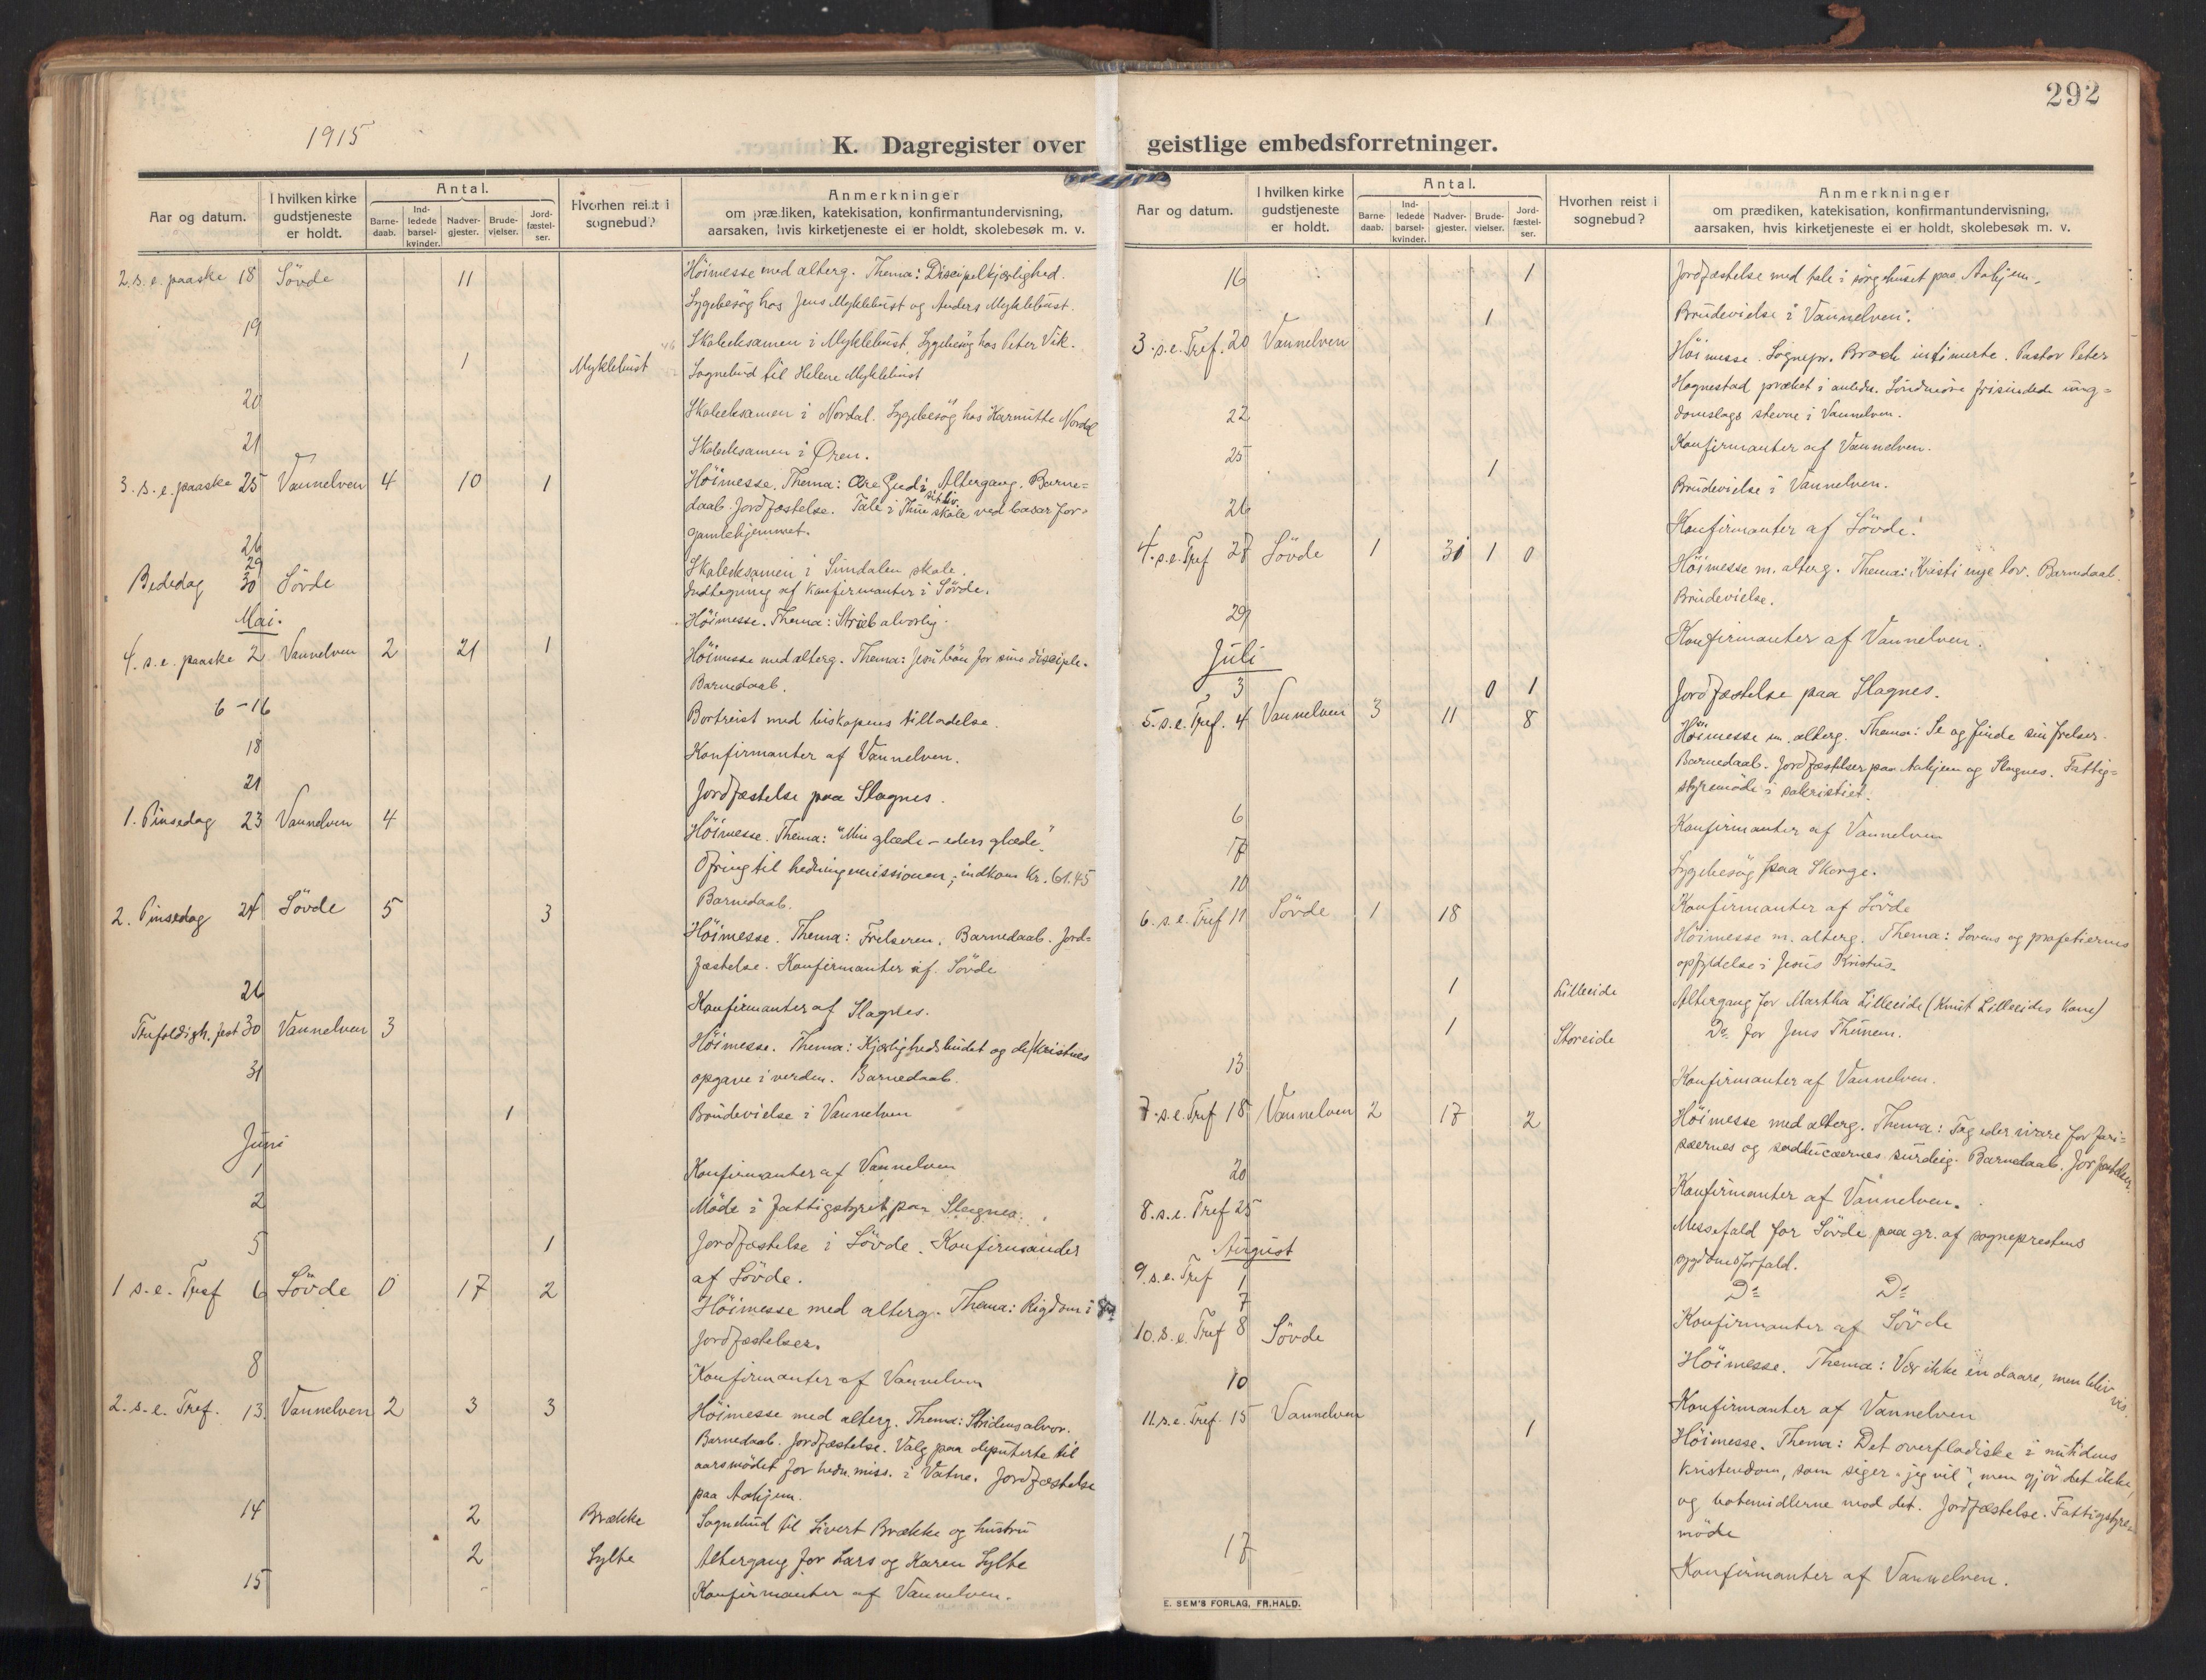 1915
K. Dagregister over
Aar og datum.
I hvilken kirke gudstjeneste er holdt.
Antal.
Barne-daab.
Ind-ledede barsel-kvinder.
Nadver-gjester.
Brude-vielser.
Jord-fæstel-ser.
Hvorhen reist i sognebud?
Anmerkninger
om prædiken, katekisation, konfirmantundervisning,
aarsaken, hvis kirketjeneste ei er holdt, skolebesøk m. v.
2. s. e. paaske 18 Sövde 11 Höimesse med alterg. Thema: Discipelkjærlighed.
Sygebesög hos Jens Myklebust og Anders Myklebust.
19 Skoleeksamen i Myklebust, Sygebesög hos Peter Vik.
1 Myklebust Sognebud til Helene Myklebust
20 Skoleeksamen i Nordal. Sygebesög hos Nordal
21 Skoleeksamen i Øren.
3. s. e. paaske 25 Vannelven 4 10 1 Höimesse. Thema: Ære Gud i sit liv. Altergang. Barne=
daab. Jordfæstelse. Tale i Thue skole ved basar for
gamlehjemmet.
26 Skoleeksamen i Sundalen skole.
29 Indtegning af konfirmanter i Sövde.
Bededag 30 Sövde Höimesse. Thema: Stræb alvorlig.
Mai.
4. s. e. paaske 2 Vannelven 2 21 1 Höimesse med alterg. Thema: Jesu bön for sine disciple.
Barnedaab.
6 - 16 Bortreist med biskopens tilladelse.
18 Konfirmanter af Vannelven.
21 Jordfæstelse paa Slagnes.
1. Pinsedag 23 Vannelven 4 Höimesse. Thema: "Min glæde - eders glæde."
Ofring til hedningemissionen; indkom Kr. 61.45
Barnedaab.
2. Pinsedag 24 Sövde 5 3 Höimesse. Thema: Frelseren. Barnedaab. Jord=
fæstelse. Konfirmanter af Sövde
26 Konfirmanter af Slagnes.
Trefoldigh. fest 30 Vannelven 3 Höimesse. Thema: Kjærlighedsbudet og de kristnes
opgave i verden. Barnedaab.
31 1 Brudevielse i Vannelven
Juni
1 Konfirmanter af Vannelven
2 Möde i fattigstyret paa Slagnes.
5 1 Jordfæstelse i Sövde. Konfirmander
af Sövde.
1 s. e. Tref 6 Sövde 0 17 2 Höimesse med alterg. Thema: Rigdom i
Jordfæstelser.
8 Konfirmanter af Vannelven
2. s. e. Tref. 13 Vannelven 2 3 3 Höimesse med alterg. Thema: Stridens alvor.
Barnedaab. Jordfæstelse. Valg paa deputerte til
aarsmödet for hedn. miss. i Vatne. Jordfæstelse
paa Aahjem.
14 2 Brække Sognebud til Sivert Brække og hustru
2 Sylte Altergang for Lars og Karen Sylte
15 Konfirmanter af Vannelven.
292
geistlige embedsforretninger.
Aar og datum.
I hvilken kirke gudstjeneste er holdt.
Antal.
Barne-daab.
Ind-ledede barsel-kvinder.
Nadver-gjester.
Brude-vielser.
Jord-fæstel-ser.
Hvorhen reist i sognebud?
Anmerkninger
om prædiken, katekisation, konfirmantundervisning,
aarsaken, hvis kirketjeneste ei er holdt, skolebesøk m. v.
16 1 Jordfæstelse med tale i sörgehuset paa Aahjem.
1 Brudevielse i Vannelven.
3. s. e. Tref. 20 Vannelven Höimesse. Sognepr. Brach intimerte. Pastor Peter
Hognestad præket i anledn. Söndmöre frisindede ung=
domslags stevne i Vannelven.
22 Konfirmanter af Vannelven.
25 1 Brudevielse i Vannelven.
26 Konfirmanter af Sövde.
4. s. e. Tref 27 Sövde 1 31 1 0 Höimesse m. alterg. Thema: Kristi nye lov. Barnedaab.
Brudevielse.
29 Konfirmanter af Vannelven.
Juli
3 0 1 Jordfæstelse paa Slagnes.
5. s. e. Tref. 4 Vannelven 3 11 8 Höimesse m. alterg. Thema: Se og finde sin frelser.
Barnedaab. Jordfæstelser paa Aahjem og Slagnes. Fattig=
styremöde i sakristiet.
6 Konfirmanter af Vannelven
7 Sygebesög paa Skorge.
10 Konfirmanter af Sövde
6. s. e. Tref 11 Sövde 1 18 Höimesse m. alterg. Thema: Lovens og profetiernes
opfyldelse i Jesus Kristus.
1 Lilleeide Altergang for Martha Lilleeide (Knut Lilleeides kone)
1 Storeide Do for Jens Thunem.
13 Konfirmanter af Vannelven.
7. s. e. Tref 18 Vannelven 2 17 2 Höimesse med alterg. Thema: Tag eder ivare for fari=
sæernes og sadducæernes surdeig. Barnedaab. Jordfæstelser.
20 Konfirmanter af Vannelven.
8. s. e. Tref 25 Messefald for Sövde paa gr. af sogneprestens
sygdomsforfald.
August
9. s. e. Tref 1 Do Do
7 Konfirmanter af Sövde
10. s. e. Tref 8 Sövde Höimesse. Thema: Vær ikke en daare, men bliv vis.
10 Konfirmanter af Vannelven
11. s. e. Tref. 15 Vannelven 1 Höimesse. Thema: Det overfladiske i nutidens
kristendom, som siger "jeg vil", men gjör det ikke,
og botemidlerne mod det. Jordfæstelse. Fattigstyre=
möde
17 Konfirmanter af Vannelven.
E. SEM'S FORLAG, FR.HALD.